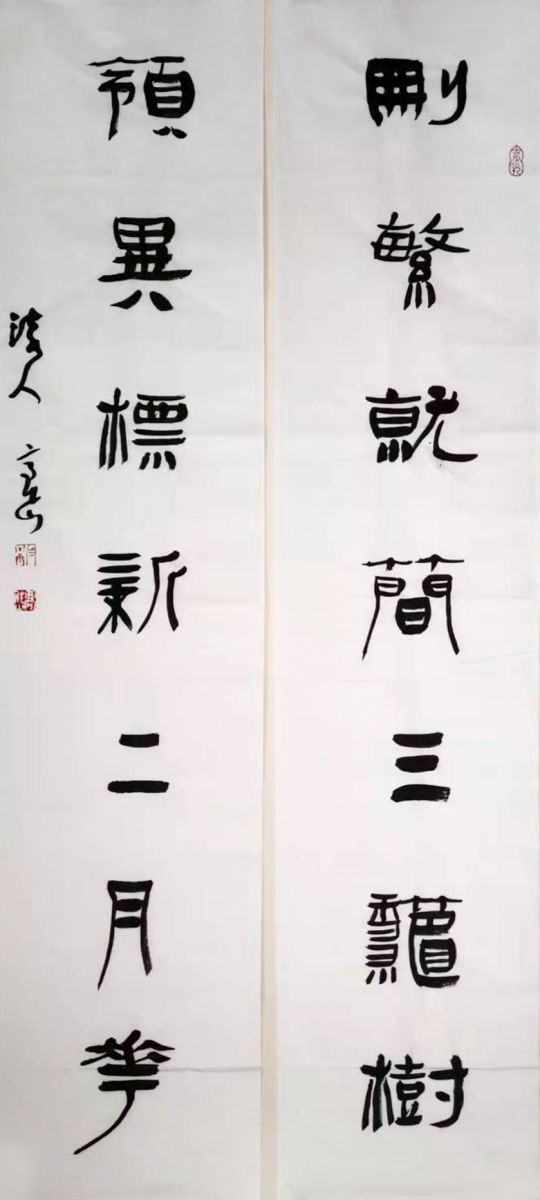 刪繁就簡三龝樹
領異標新二月華
清人